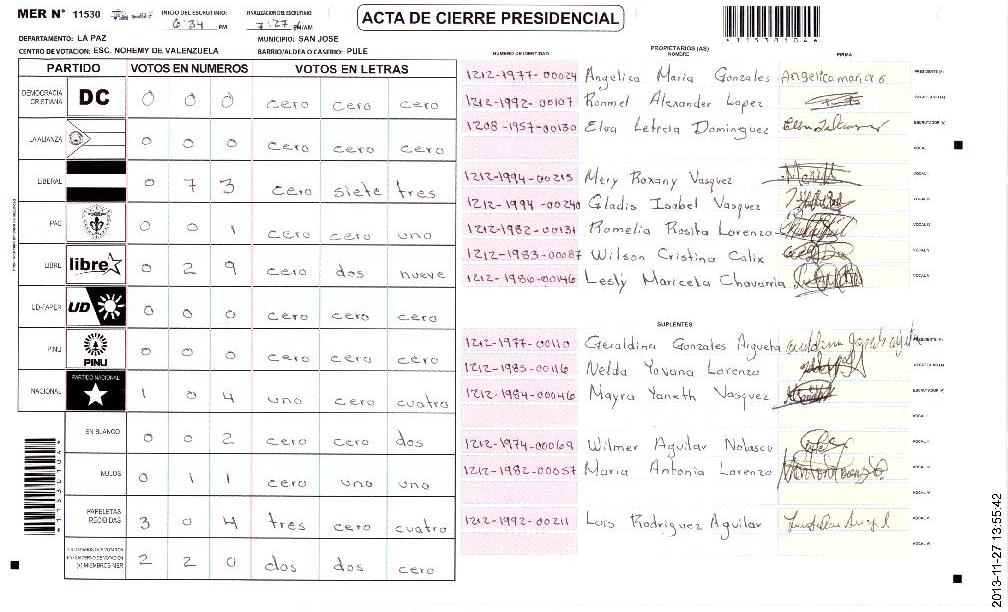 MER N° 11530
INICIO DEL ESCRUTINIO 6:34 PM
FINALIZACION DEL ESCRUTINIO 7:27 PM/AM
ACTA DE CIERRE PRESIDENCIAL
11530104
DEPARTAMENTO: LA PAZ
MUNICIPIO: SAN JOSE
CENTRO DE VOTACION: ESC. NOHEMY DE VALENZUELA
BARRIO/ALDEA O CASERIO: PULE
PARTIDO VOTOS EN NUMEROS VOTOS EN LETRAS
DEMOCRACIA CRISTIANA DC 0 0 0 cero cero cero
LA ALIANZA 0 0 0 cero cero cero
LIBERAL 0 7 3 cero siete tres
PAC 0 0 1 cero cero uno
LIBRE libre 0 2 9 cero dos nueve
UD-FAPER UD 0 0 0 cero cero cero
PINU PINU 0 0 0 cero cero cero
NACIONAL PARTIDO NACIONAL 1 0 4 uno cero cuatro
EN BLANCO 0 0 2 cero cero dos
NULOS 0 1 1 cero uno uno
PAPELETAS RECIBIDAS 3 0 4 tres cero cuatro
(+) MIEMBROS MER 2 2 0 dos dos cero
NUMERO DE IDENTIDAD PROPIETARIOS (AS) NOMBRE FIRMA
1212-1977-00024 Angelica Maria Gonzales Angelica maria G PRESIDENTE (A)
1212-1992-00107 Ronmel Alexander Lopez SECRETARIO (A)
1208-1957-00130 Elva Leticia Dominguez ESCRUTADOR (A)
VOCAL I
1212-1994-00215 Mery Roxany Vasquez VOCAL II
1212-1994-00240 Gladis Isabel Vasquez VOCAL III
1212-1982-00131 Romelia Rosita Lorenzo VOCAL IV
1212-1983-00087 Wilson Cristino Calix VOCAL V
1212-1986-00146 Lesly Maricela Chavarria VOCAL VI
SUPLENTES
1212-1977-00110 Geraldina Gonzales Argueta PRESIDENTE (A)
1212-1985-00116 Nelda Yovana Lorenzo SECRETARIO (A)
1212-1984-00046 Mayra Yaneth Vasquez ESCRUTADOR (A)
VOCAL I
1212-1974-00069 Wilmer Aguilar Nolasco VOCAL II
1212-1982-00057 Maria Antonia Lorenzo VOCAL III
VOCAL IV
1212-1992-00211 Luis Rodriguez Aguilar VOCAL V
VOCAL VI
2013-11-27 13:55:42